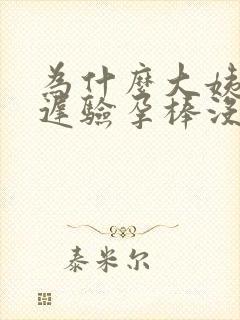 為什麼大姨
遲驗孕棒沒
泰米尔